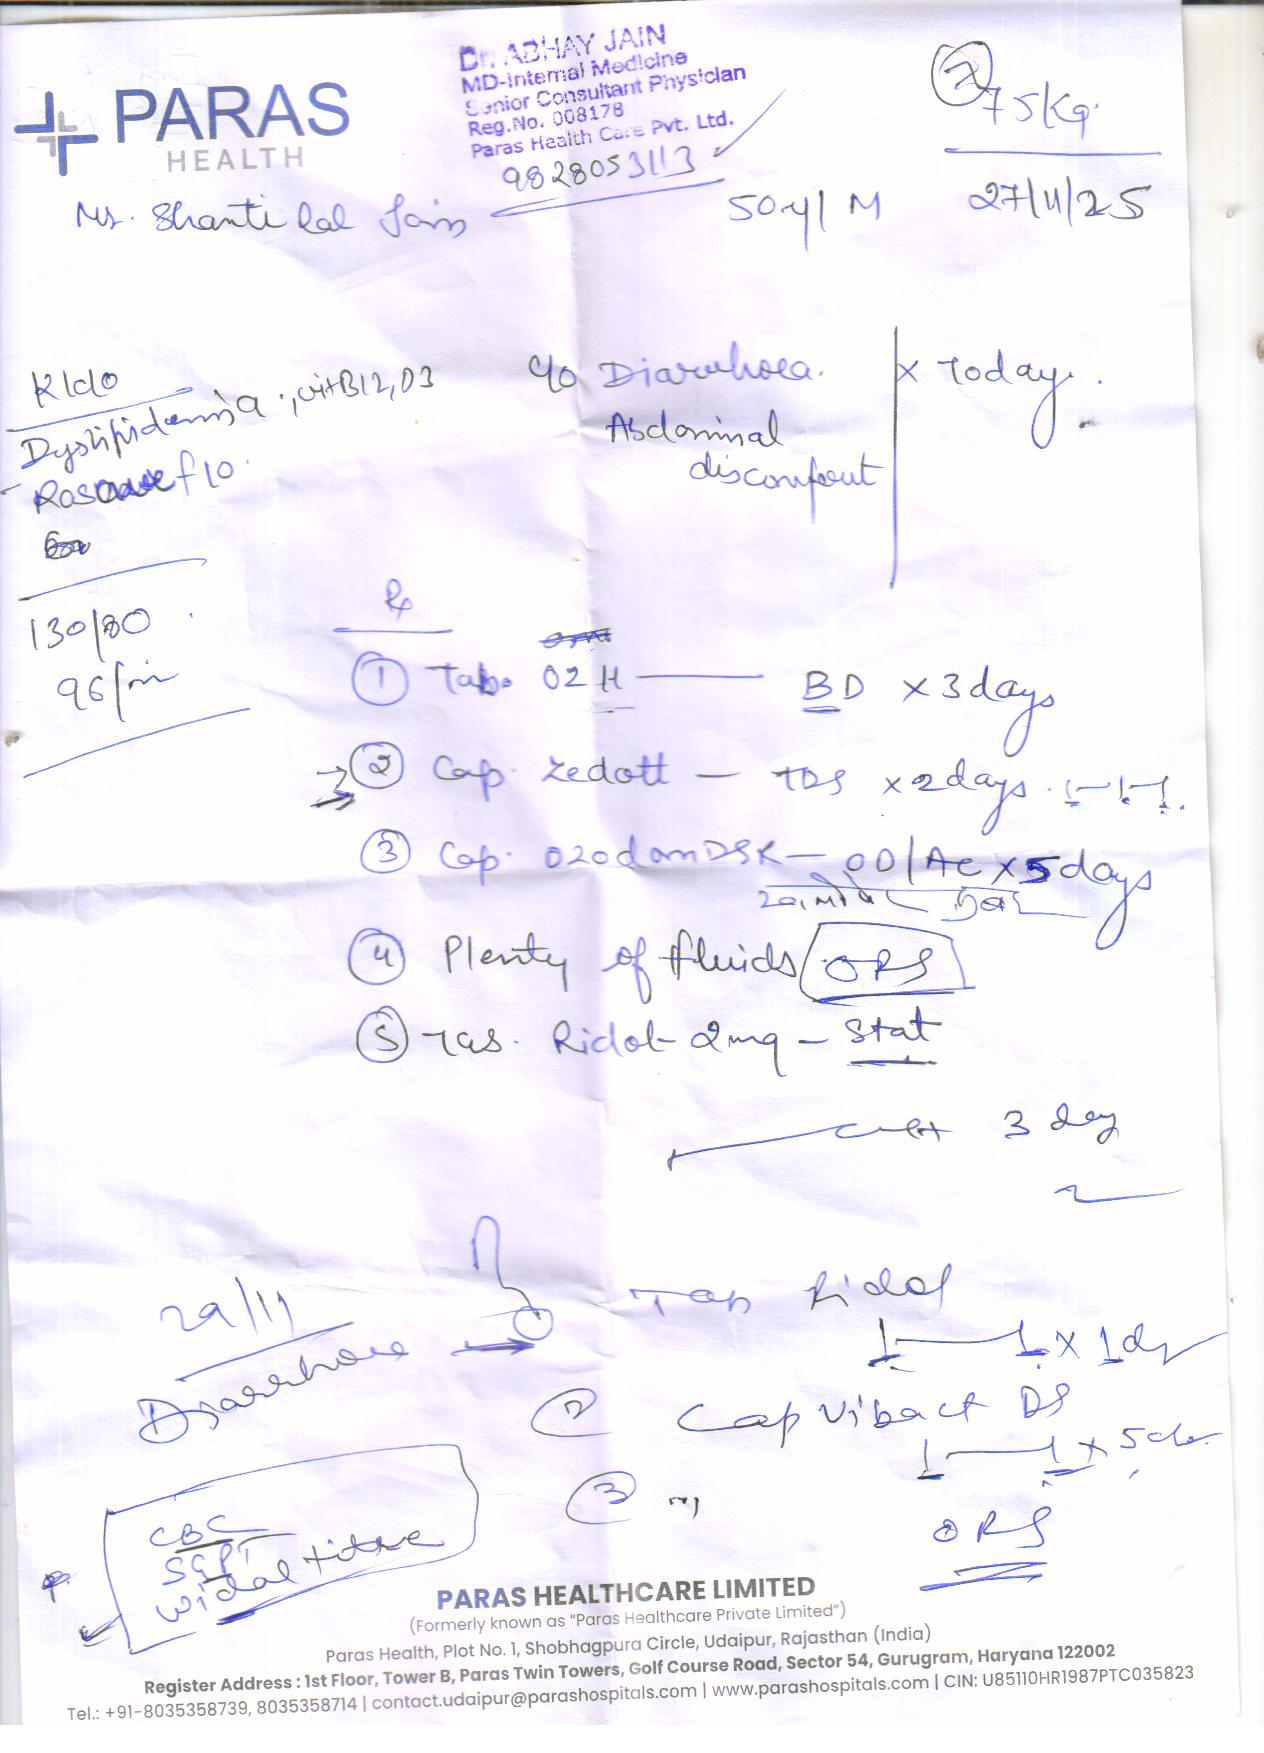 PARAS
HEALTH
Dr. ABHAY JAIN
MD-Internal Medicine
Senior Consultant Physician
Reg.No. 008178
Paras Health Care Pvt. Ltd.
9828053113
75Kg.
Mr. Shanti Lal Jain
50y/M
27/11/25
K/c/o
Dyslipidemia, vit B12, D3
f 10
130/80
96/min
c/o Diarrhoea. x Today.
Abdominal
discomfort
Rx
① Tab. O2H — BD x 3 days
② Cap. Zedott — TDS x 2 days. 1-1-1.
③ Cap. OZodomDSR — OD/AC x 5 days
④ Plenty of fluids/ORS
⑤ Tab. Ridol 2mg — Stat
3 day
29/11
Diarrhoea
Tab Ridol
1—1 x 1 day
② Cap Vibact DS
1—1 x 5 day
③
ORS
CBC
SGPT
Widal titre
PARAS HEALTHCARE LIMITED
(Formerly known as "Paras Healthcare Private Limited")
Paras Health, Plot No. 1, Shobhagpura Circle, Udaipur, Rajasthan (India)
Register Address : 1st Floor, Tower B, Paras Twin Towers, Golf Course Road, Sector 54, Gurugram, Haryana 122002
Tel.: +91-8035358739, 8035358714 | contact.udaipur@parashospitals.com | www.parashospitals.com | CIN: U85110HR1987PTC035823